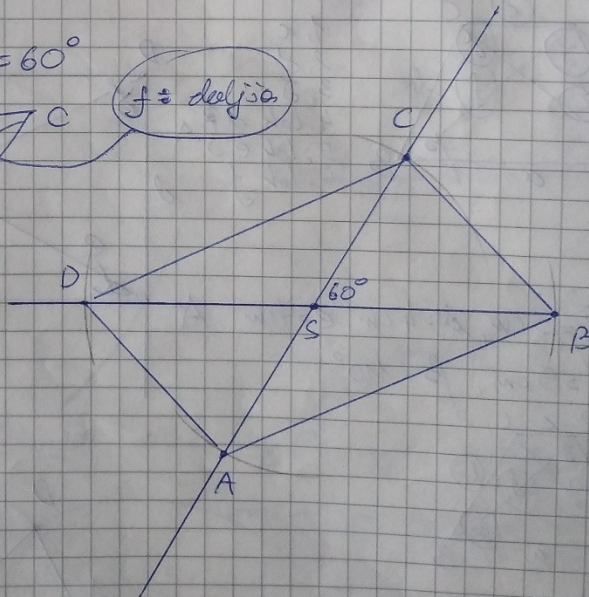 = 60°
C
f = daljša
C
D
60°
S
B
A